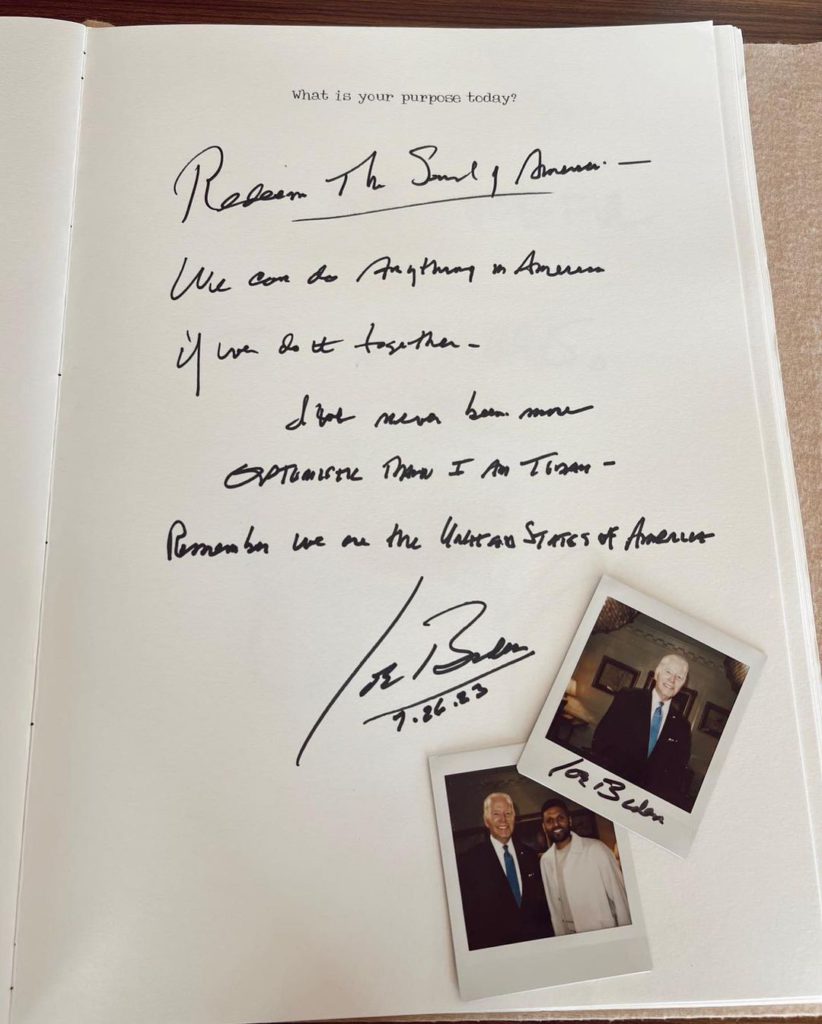 What is your purpose today?
Redeem The Soul of America. —
We can do Anything in America
if we do it together -
I've never been more
OPTIMISTIC THAN I AM TODAY -
Remember we are the UNITED STATES of AMERICA
Joe Biden
7.26.23
Joe Biden